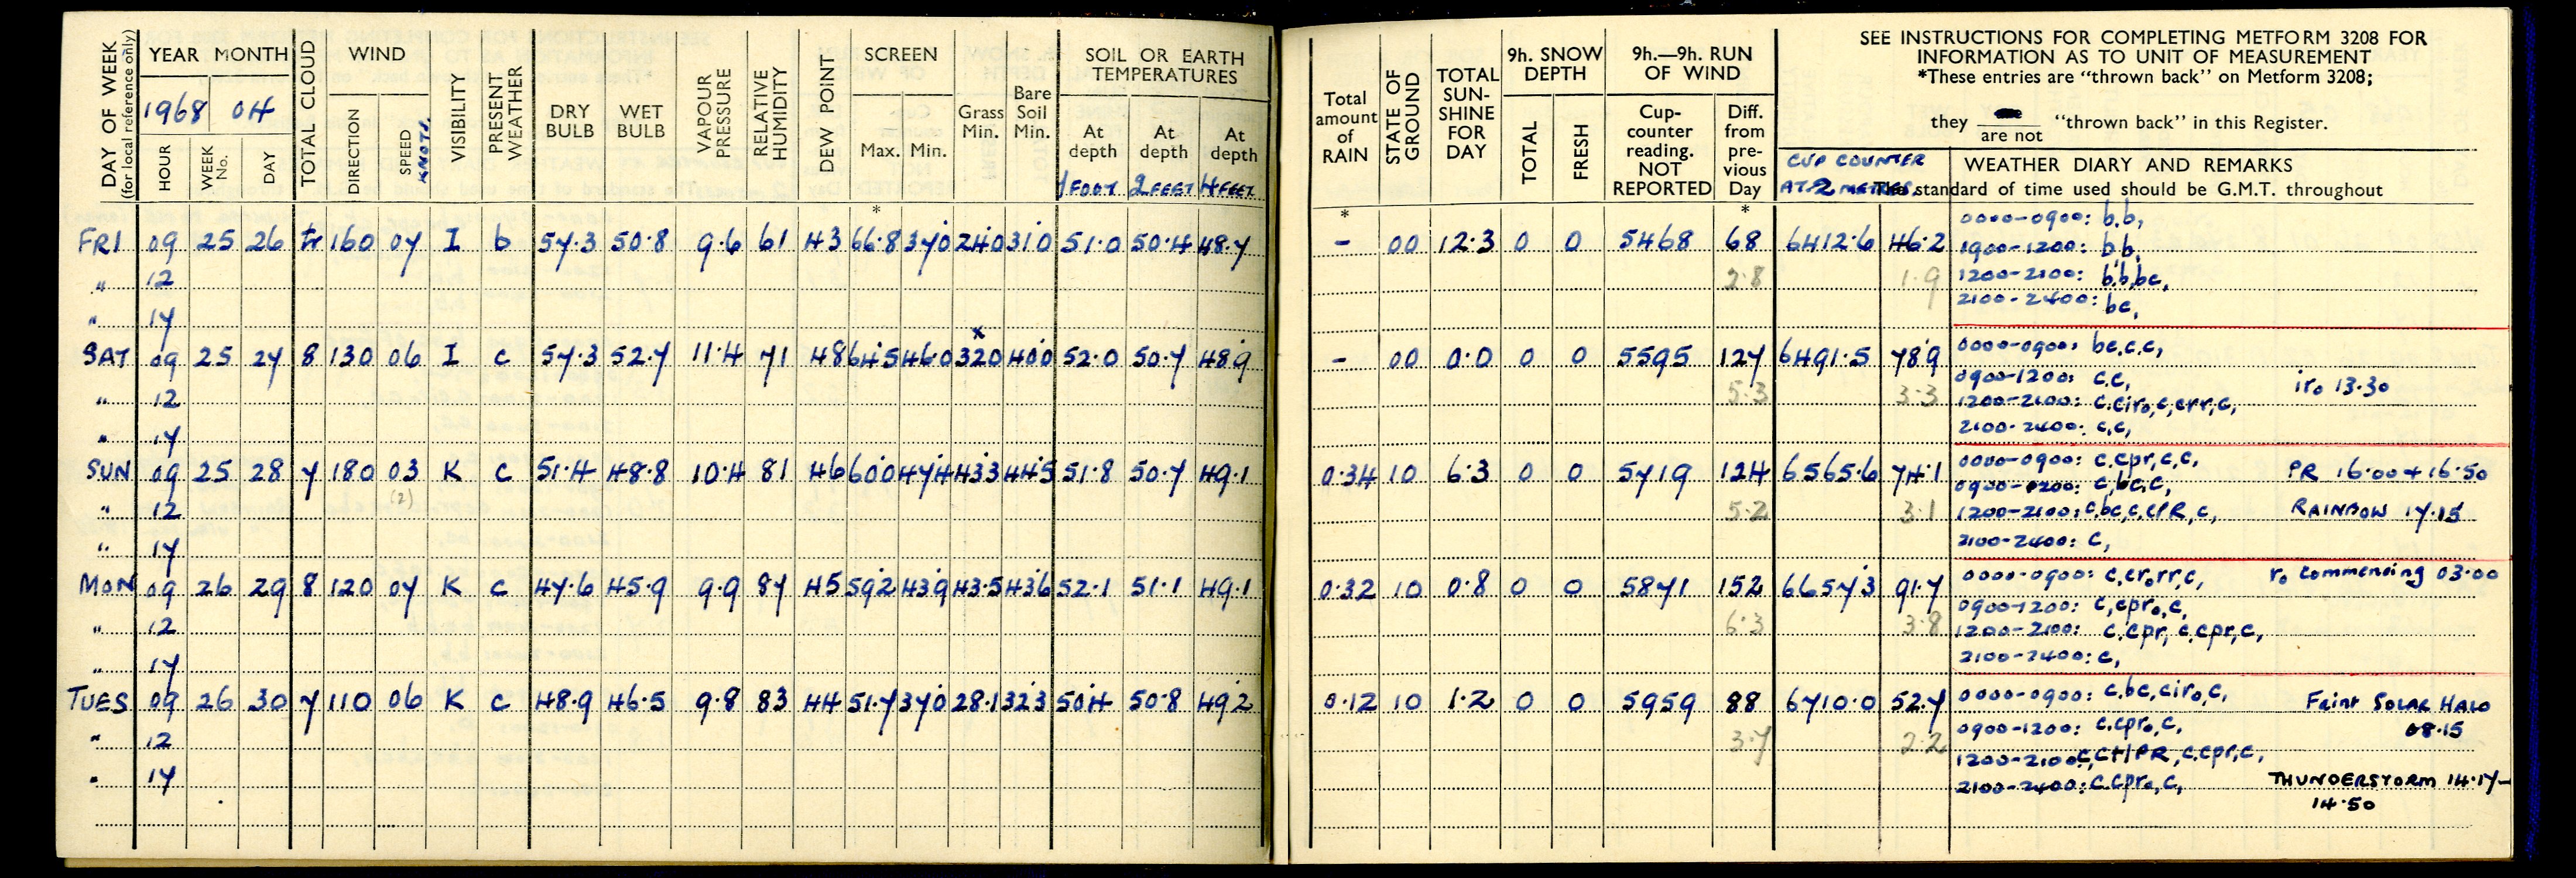 DAY OF WEEK
(for local reference only)
YEAR MONTH
1968 04
HOUR
WEEK No.
DAY
TOTAL CLOUD
WIND
DIRECTION
SPEED KNOTS.
VISIBILITY
PRESENT WEATHER
DRY BULB
WET BULB
VAPOUR PRESSURE
RELATIVE HUMIDITY
DEW POINT
SCREEN
Max. Min.
*
Grass Min.
Bare Soil Min.
SOIL OR EARTH TEMPERATURES
At depth At depth At depth
1 FOOT 2 FEET 4 FEET
Total amount of RAIN
*
STATE OF GROUND
TOTAL SUN-SHINE FOR DAY
9h. SNOW DEPTH
TOTAL
FRESH
9h.—9h. RUN OF WIND
Cup-counter reading. NOT REPORTED
Diff. from pre-vious Day
*
SEE INSTRUCTIONS FOR COMPLETING METFORM 3208 FOR
INFORMATION AS TO UNIT OF MEASUREMENT
*These entries are "thrown back" on Metform 3208;
they are not "thrown back" in this Register.
CUP COUNTER
AT 2 METRES.
WEATHER DIARY AND REMARKS
The standard of time used should be G.M.T. throughout
FRI 09 25 26 tr 160 07 I b 57.3 50.8 9.6 61 43 66.8 37.0 24.0 31.0 51.0 50.4 48.7 - 00 12.3 0 0 5468 68 6412.6 46.2
0000-0900: b,b,
0900-1200: b,b,
" 12 2.8 1.9
1200-2100: b,b,bc,
2100-2400: bc,
" 17
SAT 09 25 27 8 130 06 I c 57.3 52.7 11.4 71 48 64.5 46.0 32.0 40.0 52.0 50.7 48.9 - 00 0.0 0 0 5595 127 6491.5 78.9
x
0000-0900: bc,c,c,
0900-1200: c,c, ir₀ 13.30
" 12 5.3 3.3
1200-2100: c,cir₀,c,crr,c,
2100-2400: c,c,
" 17
SUN 09 25 28 7 180 03 K c 51.4 48.8 10.4 81 46 60.0 47.4 43.3 44.5 51.8 50.7 49.1 0.34 10 6.3 0 0 5719 124 6565.6 74.1
(2)
0000-0900: c,cpr,c,c, PR 16.00 + 16.50
0900-1200: c,bc,c,
" 12 5.2 3.1
1200-2100: c,bc,c,cPR,c, RAINBOW 17.15
2100-2400: c,
" 17
MON 09 26 29 8 120 07 K c 47.6 45.9 9.9 87 45 59.2 43.9 43.5 43.6 52.1 51.1 49.1 0.32 10 0.8 0 0 5871 152 6657.3 91.7
0000-0900: c,cr₀rr,c, r₀ commencing 03.00
0900-1200: c,cpr₀,c,
" 12 6.3 3.8
1200-2100: c,cpr, c,cpr,c,
2100-2400: c,
" 17
TUES 09 26 30 7 110 06 K c 48.9 46.5 9.8 83 44 51.7 37.0 28.1 32.3 50.4 50.8 49.2 0.12 10 1.2 0 0 5959 88 6710.0 52.7
0000-0900: c,bc,cir₀,c, Faint SOLAR HALO 08.15
0900-1200: c,cpr₀,c,
" 12 3.7 2.2
1200-2100: c,CH/PR,c,cpr,c,
" 17
2100-2400: c,cpr₀,c, THUNDERSTORM 14.17–
14.50